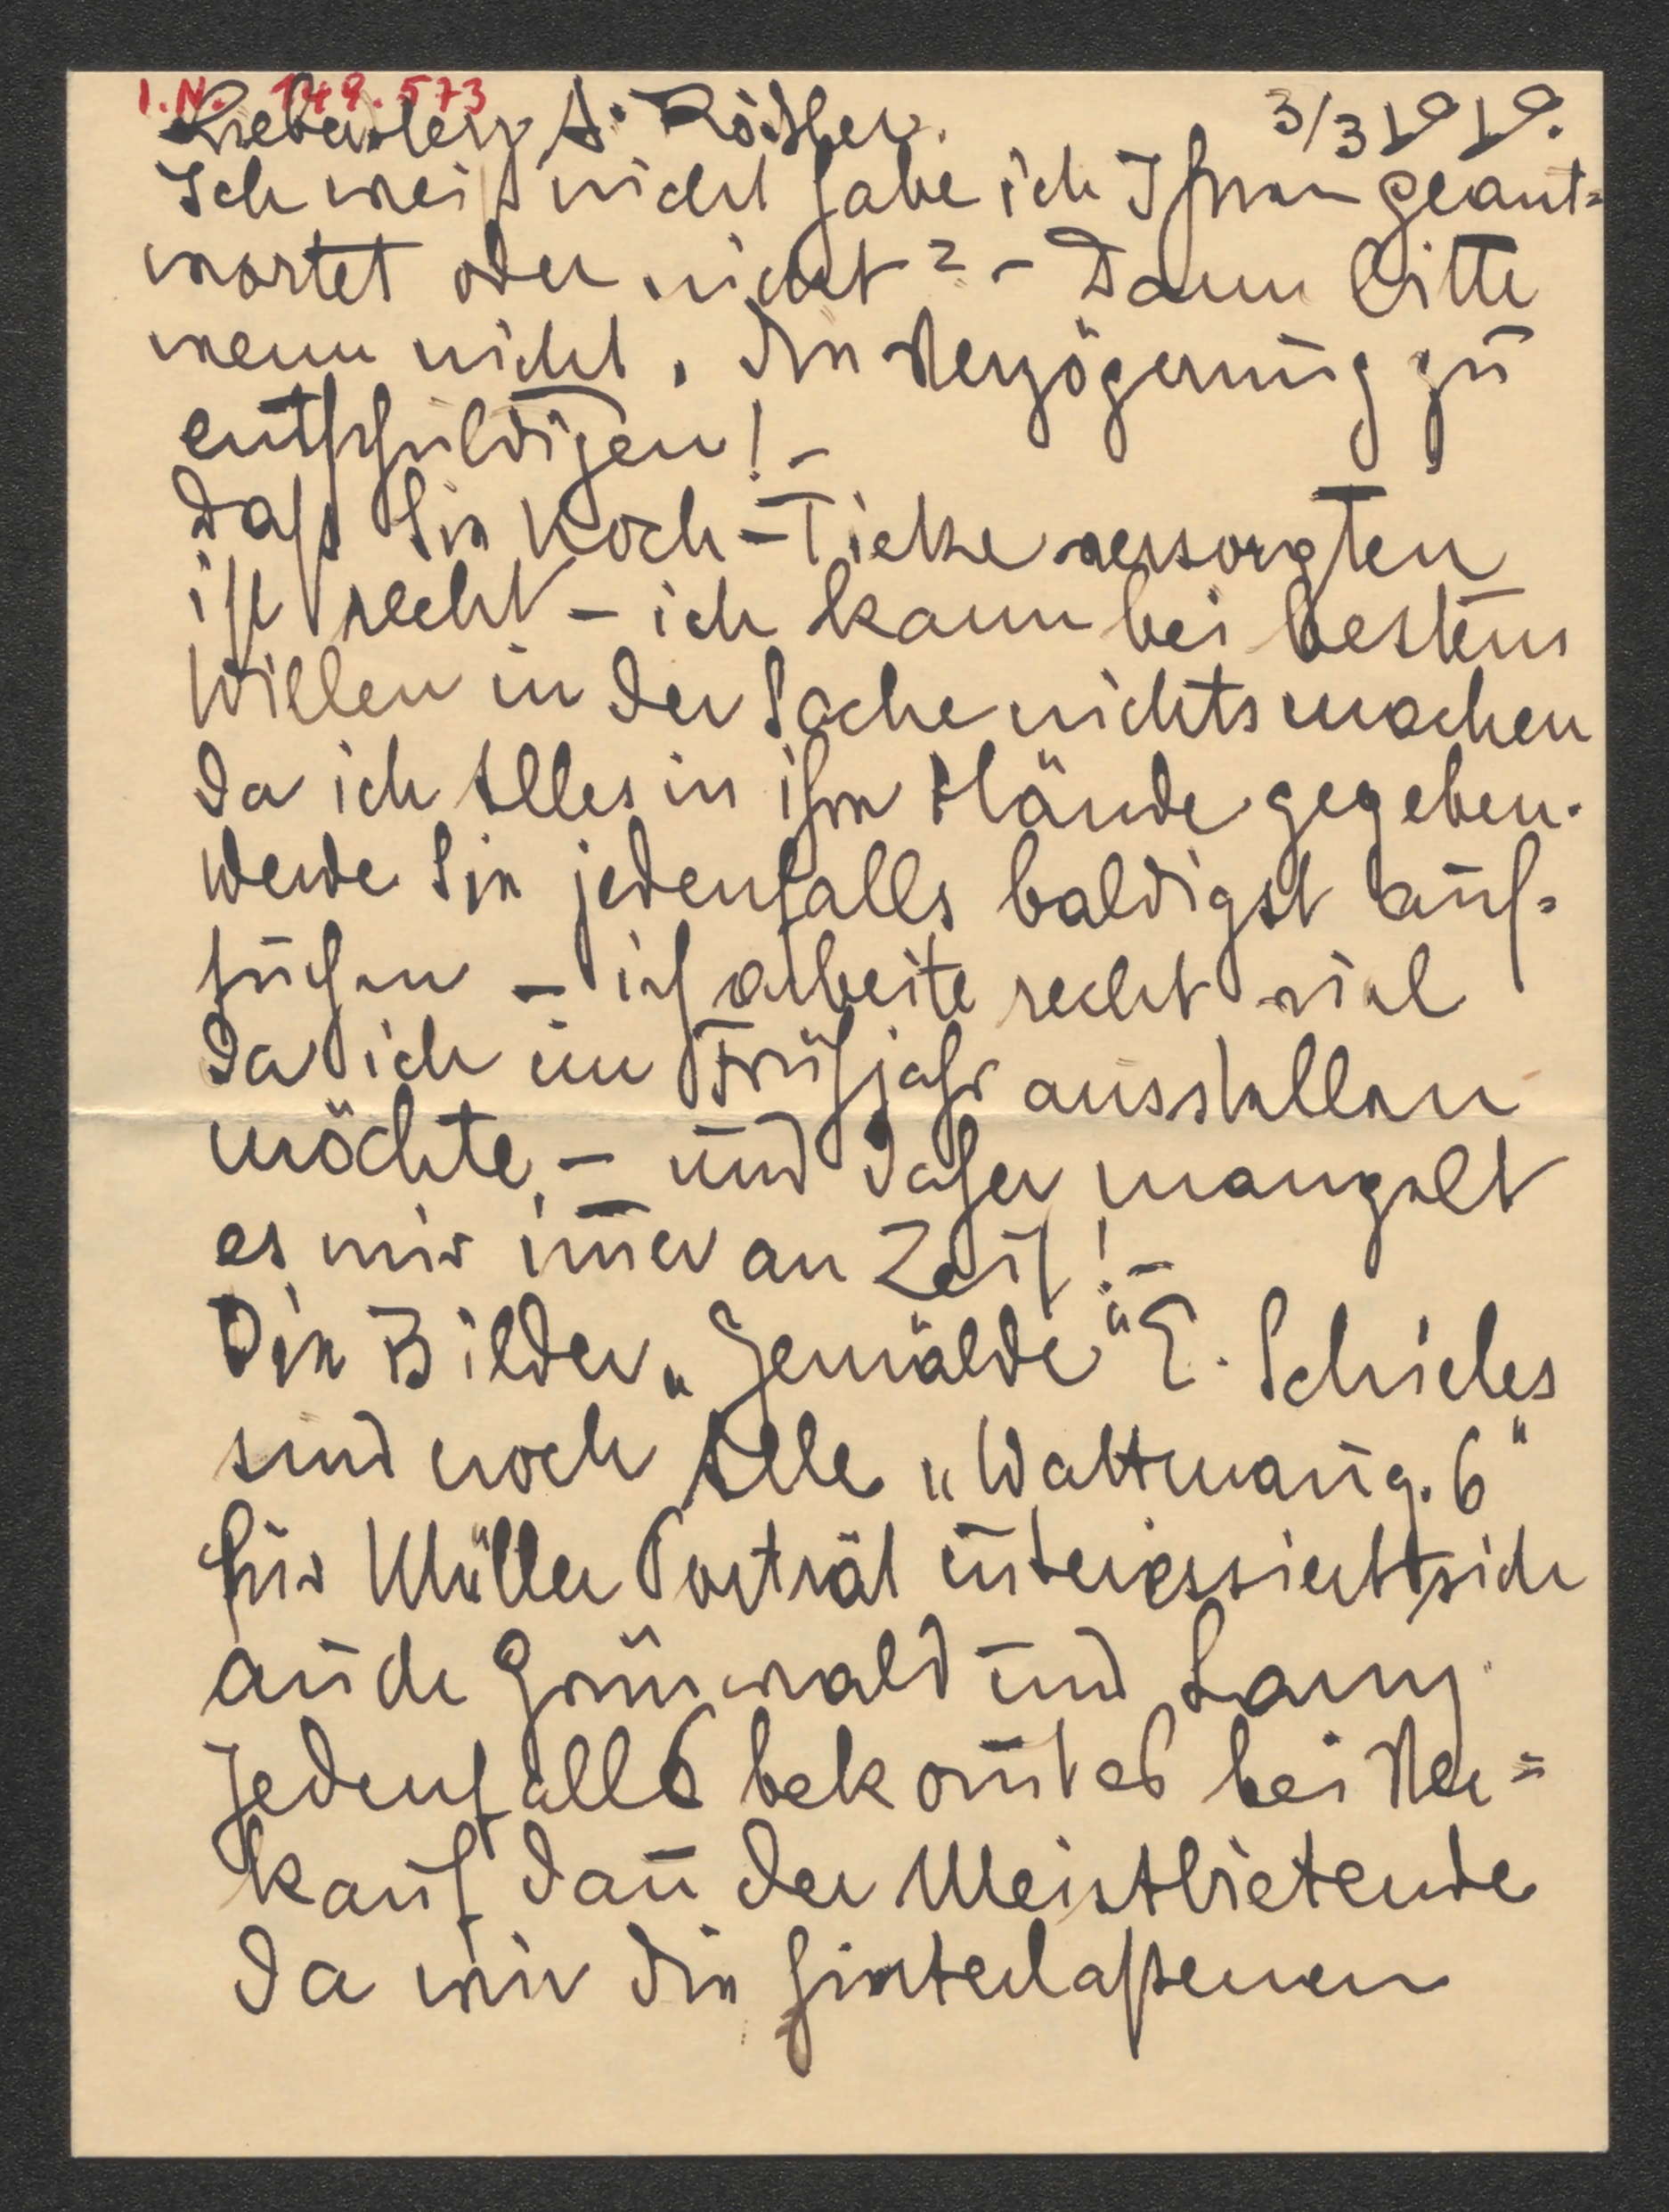 I.N. 149.573
Lieber Herr A. Roessler. 3/3 1919.
Ich weiß nicht habe ich Ihnen geant=
wortet oder nicht? – Dann bitte
wenn nicht, die Verzögerung zu
entschuldigen! –
Daß Sie Koch – Tietze versorgten
ist recht – ich kann bei bestem
Willen in der Sache nichts machen
da ich Alles in ihre Hände gegeben.
Werde Sie jedenfalls baldigst auf=
suchen – ich arbeite recht viel
da ich im Frühjahr ausstellen
möchte, – und daher mangelt
es mir im̅er an Zeit! –
Die Bilder „Gemälde" E. Schieles
sind noch Alle „Wattmang. 6"
für Müller Porträt interessiert sich
auch Grünwald und Lany
jedenfalls bekom̅t es bei Ver=
kauf dan̅ der Meistbietende
da wir die hinterlaßenen